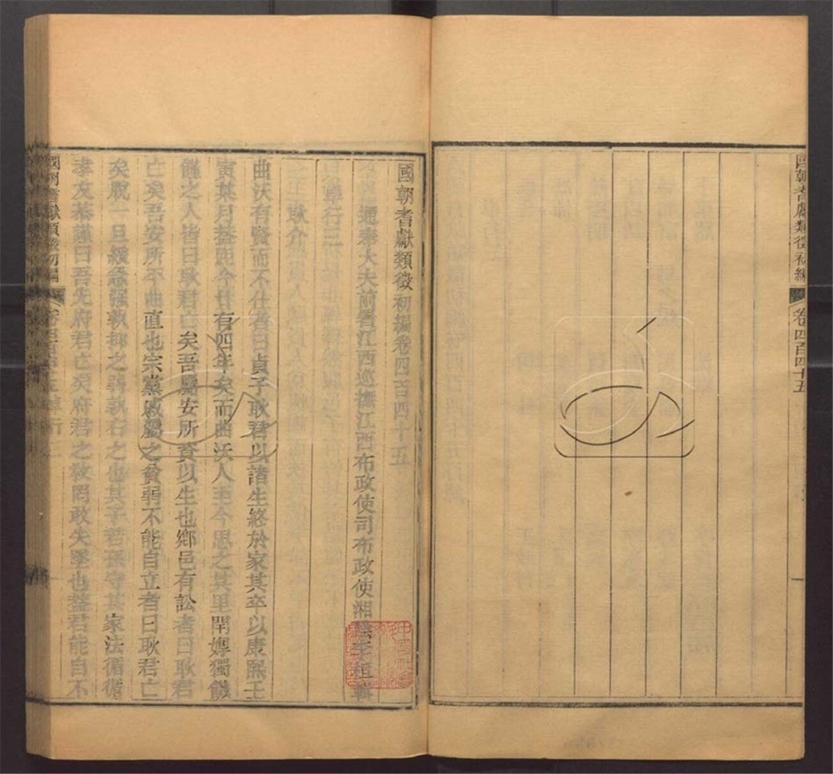 國朝耆獻類徵初編
卷四百四十五
國朝耆獻類徵初編卷四百四十五
通奉大夫前署江西巡撫江西布政使司布政使湘陰李桓輯
耿介
曲沃有賢而不仕者曰貞子耿君以諸生終於家其卒以康熙壬
寅某月葢距今廿有四年矣而曲沃人至今思之其里閈嫥獨饑
饉之人皆曰耿君亡矣吾屬安所資以生也鄉邑有訟者曰耿君
亡矣吾安所平曲直也宗黨戚屬之貧弱不能自立者曰耿君亡
矣脫一旦緩急強孰抑之弱孰右之也其子若孫守其家法循循
孝友恭謹曰吾先府君亡矣府君之教罔敢失墜也葢君能自不
國朝耆獻類徵初編